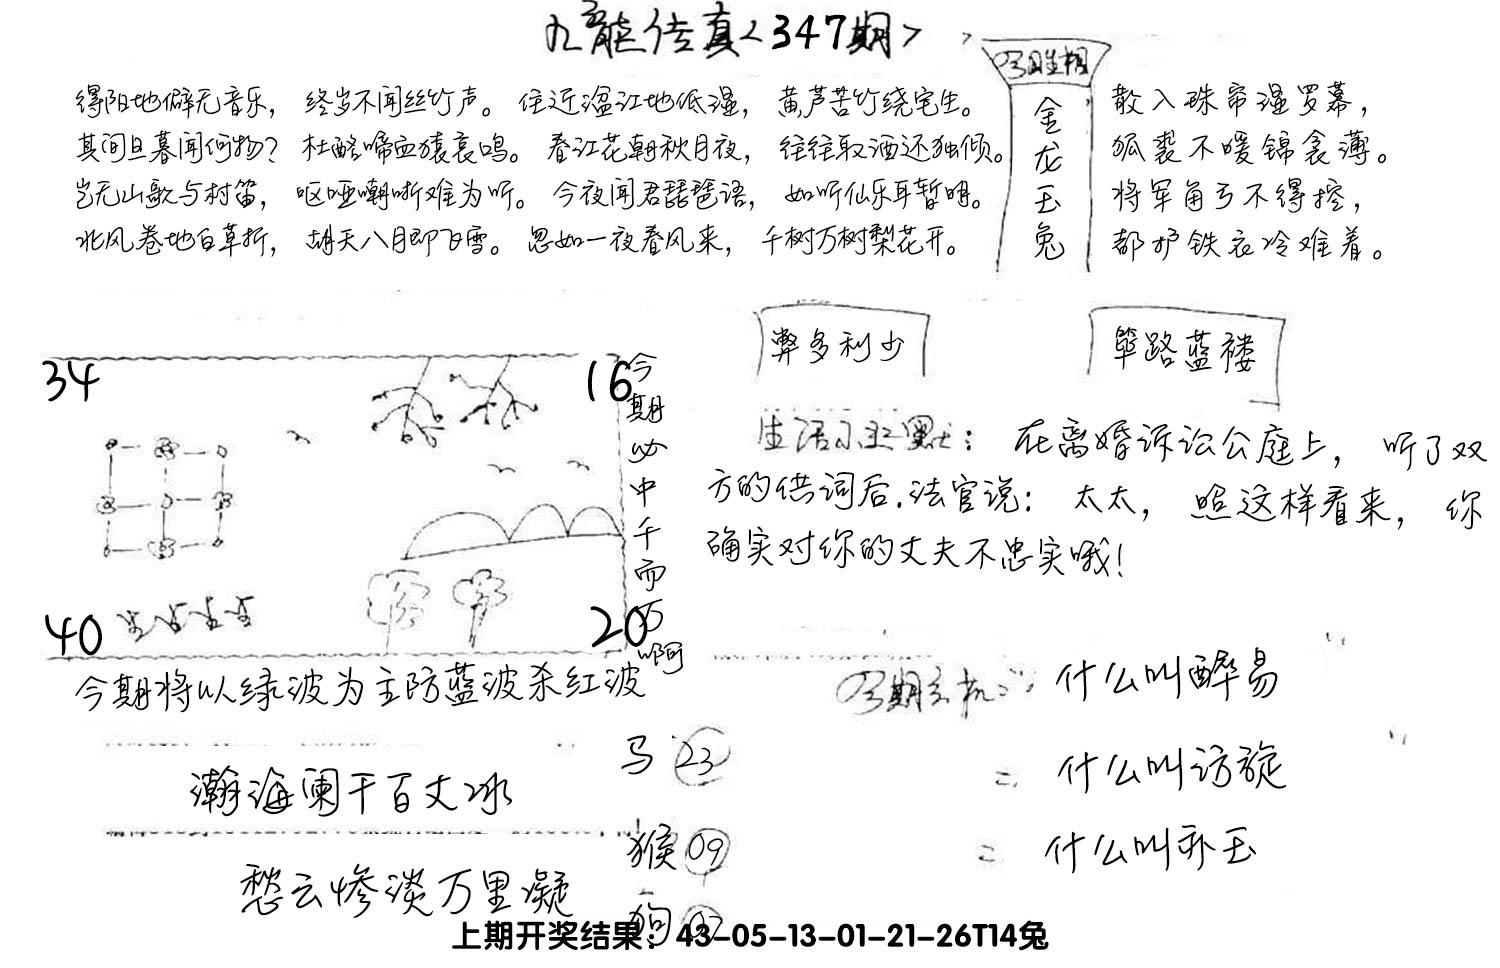 九龙传真<347期>
得阳地僻无音乐，终岁不闻丝竹声。住近湓江地低湿，黄芦苦竹绕宅生。
其间旦暮闻何物？杜酷啼血猿哀鸣。春江花朝秋月夜，往往取酒还独倾。
岂无山歌与村笛，呕哑嘲哳难为听。今夜闻君琵琶语，如听仙乐耳暂明。
北风卷地白草折，胡天八月即飞雪。忽如一夜春风来，千树万树梨花开。
今期生相
金龙玉兔
散入珠帘湿罗幕，
狐裘不暖锦衾薄。
将军角弓不得控，
都护铁衣冷难着。
34
16
40
20
今期必中千而万啊
今期将以绿波为主防蓝波杀红波
弊多利少
筚路蓝褛
生活小幽默：在离婚诉讼公庭上，听了双
方的供词后.法官说：太太，照这样看来，你
确实对你的丈夫不忠实哦！
瀚海阑干百丈冰
愁云惨淡万里凝
马 23
猴 09
狗
今期玄机：什么叫醉易
= 什么叫访旋
= 什么叫乔玉
上期开奖结果：43-05-13-01-21-26T14兔